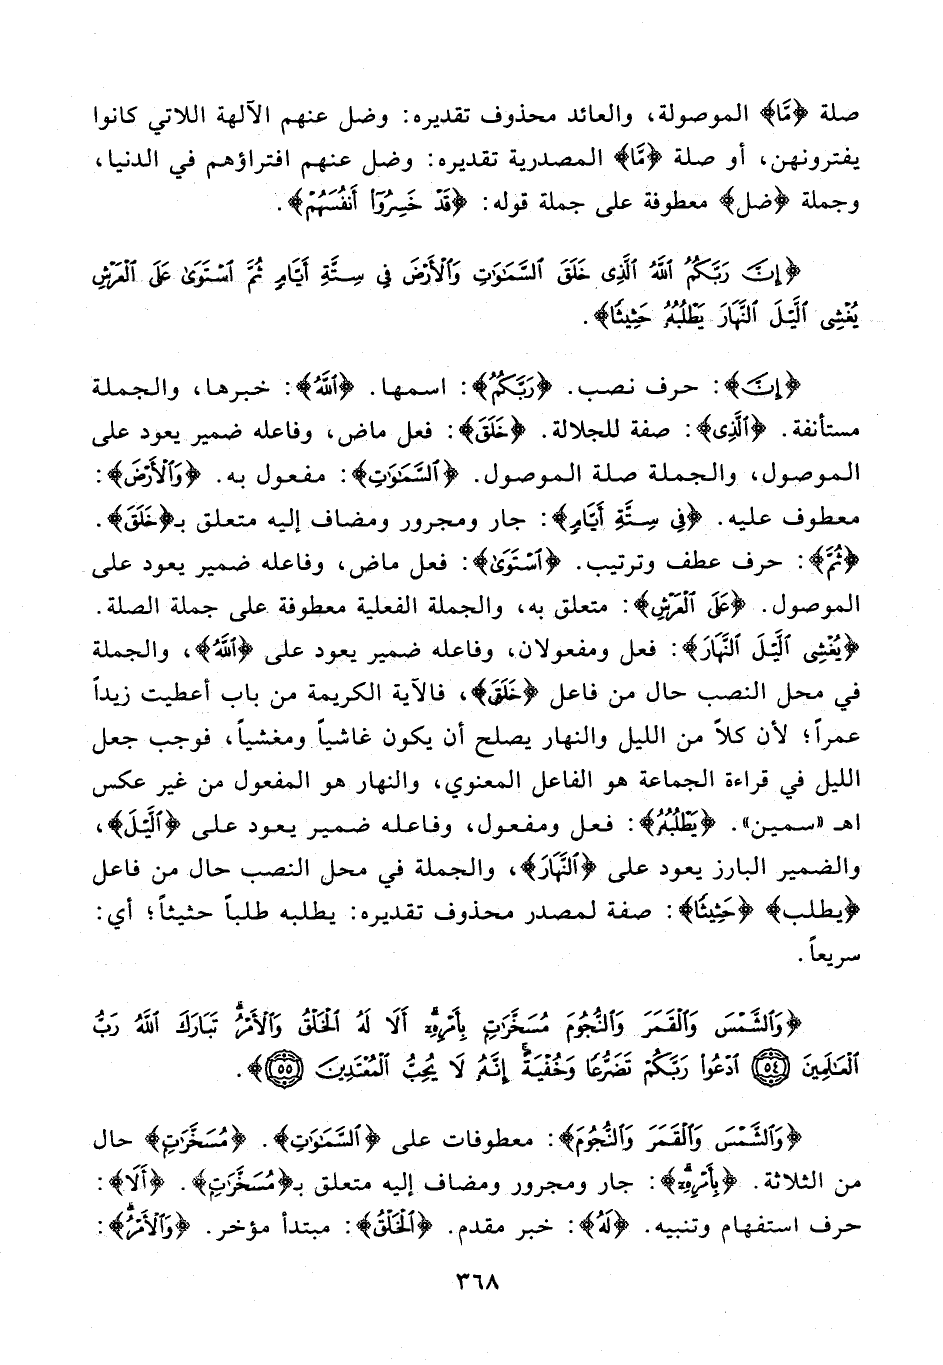 صلة ﴿مَّا﴾ الموصولة، والعائد محذوف تقديره: وضل عنهم الآلهة اللاتي كانوا
يفترونهن، أو صلة ﴿مَّا﴾ المصدرية تقديره: وضل عنهم افتراؤهم في الدنيا،
وجملة ﴿ضل﴾ معطوفة على جملة قوله: ﴿قَدْ خَسِرُوٓا۟ أَنفُسَهُمْ﴾.
﴿إِنَّ رَبَّكُمُ ٱللَّهُ ٱلَّذِى خَلَقَ ٱلسَّمَـٰوَٰتِ وَٱلْأَرْضَ فِى سِتَّةِ أَيَّامٍ ثُمَّ ٱسْتَوَىٰ عَلَى ٱلْعَرْشِ
يُغْشِى ٱلَّيْلَ ٱلنَّهَارَ يَطْلُبُهُۥ حَثِيثًا﴾.
﴿إِنَّ﴾: حرف نصب. ﴿رَبَّكُمُ﴾: اسمها. ﴿ٱللَّهُ﴾: خبرها، والجملة
مستأنفة. ﴿ٱلَّذِى﴾: صفة للجلالة. ﴿خَلَقَ﴾: فعل ماض، وفاعله ضمير يعود على
الموصول، والجملة صلة الموصول. ﴿ٱلسَّمَـٰوَٰتِ﴾: مفعول به. ﴿وَٱلْأَرْضَ﴾:
معطوف عليه. ﴿فِى سِتَّةِ أَيَّامٍ﴾: جار ومجرور ومضاف إليه متعلق بـ﴿خَلَقَ﴾.
﴿ثُمَّ﴾: حرف عطف وترتيب. ﴿ٱسْتَوَىٰ﴾: فعل ماض، وفاعله ضمير يعود على
الموصول. ﴿عَلَى ٱلْعَرْشِ﴾: متعلق به، والجملة الفعلية معطوفة على جملة الصلة.
﴿يُغْشِى ٱلَّيْلَ ٱلنَّهَارَ﴾: فعل ومفعولان، وفاعله ضمير يعود على ﴿ٱللَّهُ﴾، والجملة
في محل النصب حال من فاعل ﴿خَلَقَ﴾، فالآية الكريمة من باب أعطيت زيداً
عمراً؛ لأن كلاً من الليل والنهار يصلح أن يكون غاشياً ومغشياً، فوجب جعل
الليل في قراءة الجماعة هو الفاعل المعنوي، والنهار هو المفعول من غير عكس
اهـ «سمين». ﴿يَطْلُبُهُۥ﴾: فعل ومفعول، وفاعله ضمير يعود على ﴿ٱلَّيْلَ﴾،
والضمير البارز يعود على ﴿ٱلنَّهَارَ﴾، والجملة في محل النصب حال من فاعل
﴿يطلب﴾ ﴿حَثِيثًا﴾: صفة لمصدر محذوف تقديره: يطلبه طلباً حثيثاً؛ أي:
سريعاً.
﴿وَٱلشَّمْسَ وَٱلْقَمَرَ وَٱلنُّجُومَ مُسَخَّرَٰتٍۭ بِأَمْرِهِۦٓ ۗ أَلَا لَهُ ٱلْخَلْقُ وَٱلْأَمْرُ ۗ تَبَارَكَ ٱللَّهُ رَبُّ
ٱلْعَـٰلَمِينَ ﴿٥٤﴾ ٱدْعُوا۟ رَبَّكُمْ تَضَرُّعًا وَخُفْيَةً ۚ إِنَّهُۥ لَا يُحِبُّ ٱلْمُعْتَدِينَ ﴿٥٥﴾﴾.
﴿وَٱلشَّمْسَ وَٱلْقَمَرَ وَٱلنُّجُومَ﴾: معطوفات على ﴿ٱلسَّمَـٰوَٰتِ﴾. ﴿مُسَخَّرَٰتٍ﴾ حال
من الثلاثة. ﴿بِأَمْرِهِۦٓ ۗ﴾: جار ومجرور ومضاف إليه متعلق بـ﴿مُسَخَّرَٰتٍ﴾. ﴿أَلَا﴾:
حرف استفهام وتنبيه. ﴿لَهُ﴾: خبر مقدم. ﴿ٱلْخَلْقُ﴾: مبتدأ مؤخر. ﴿وَٱلْأَمْرُ ۗ﴾:
٣٦٨